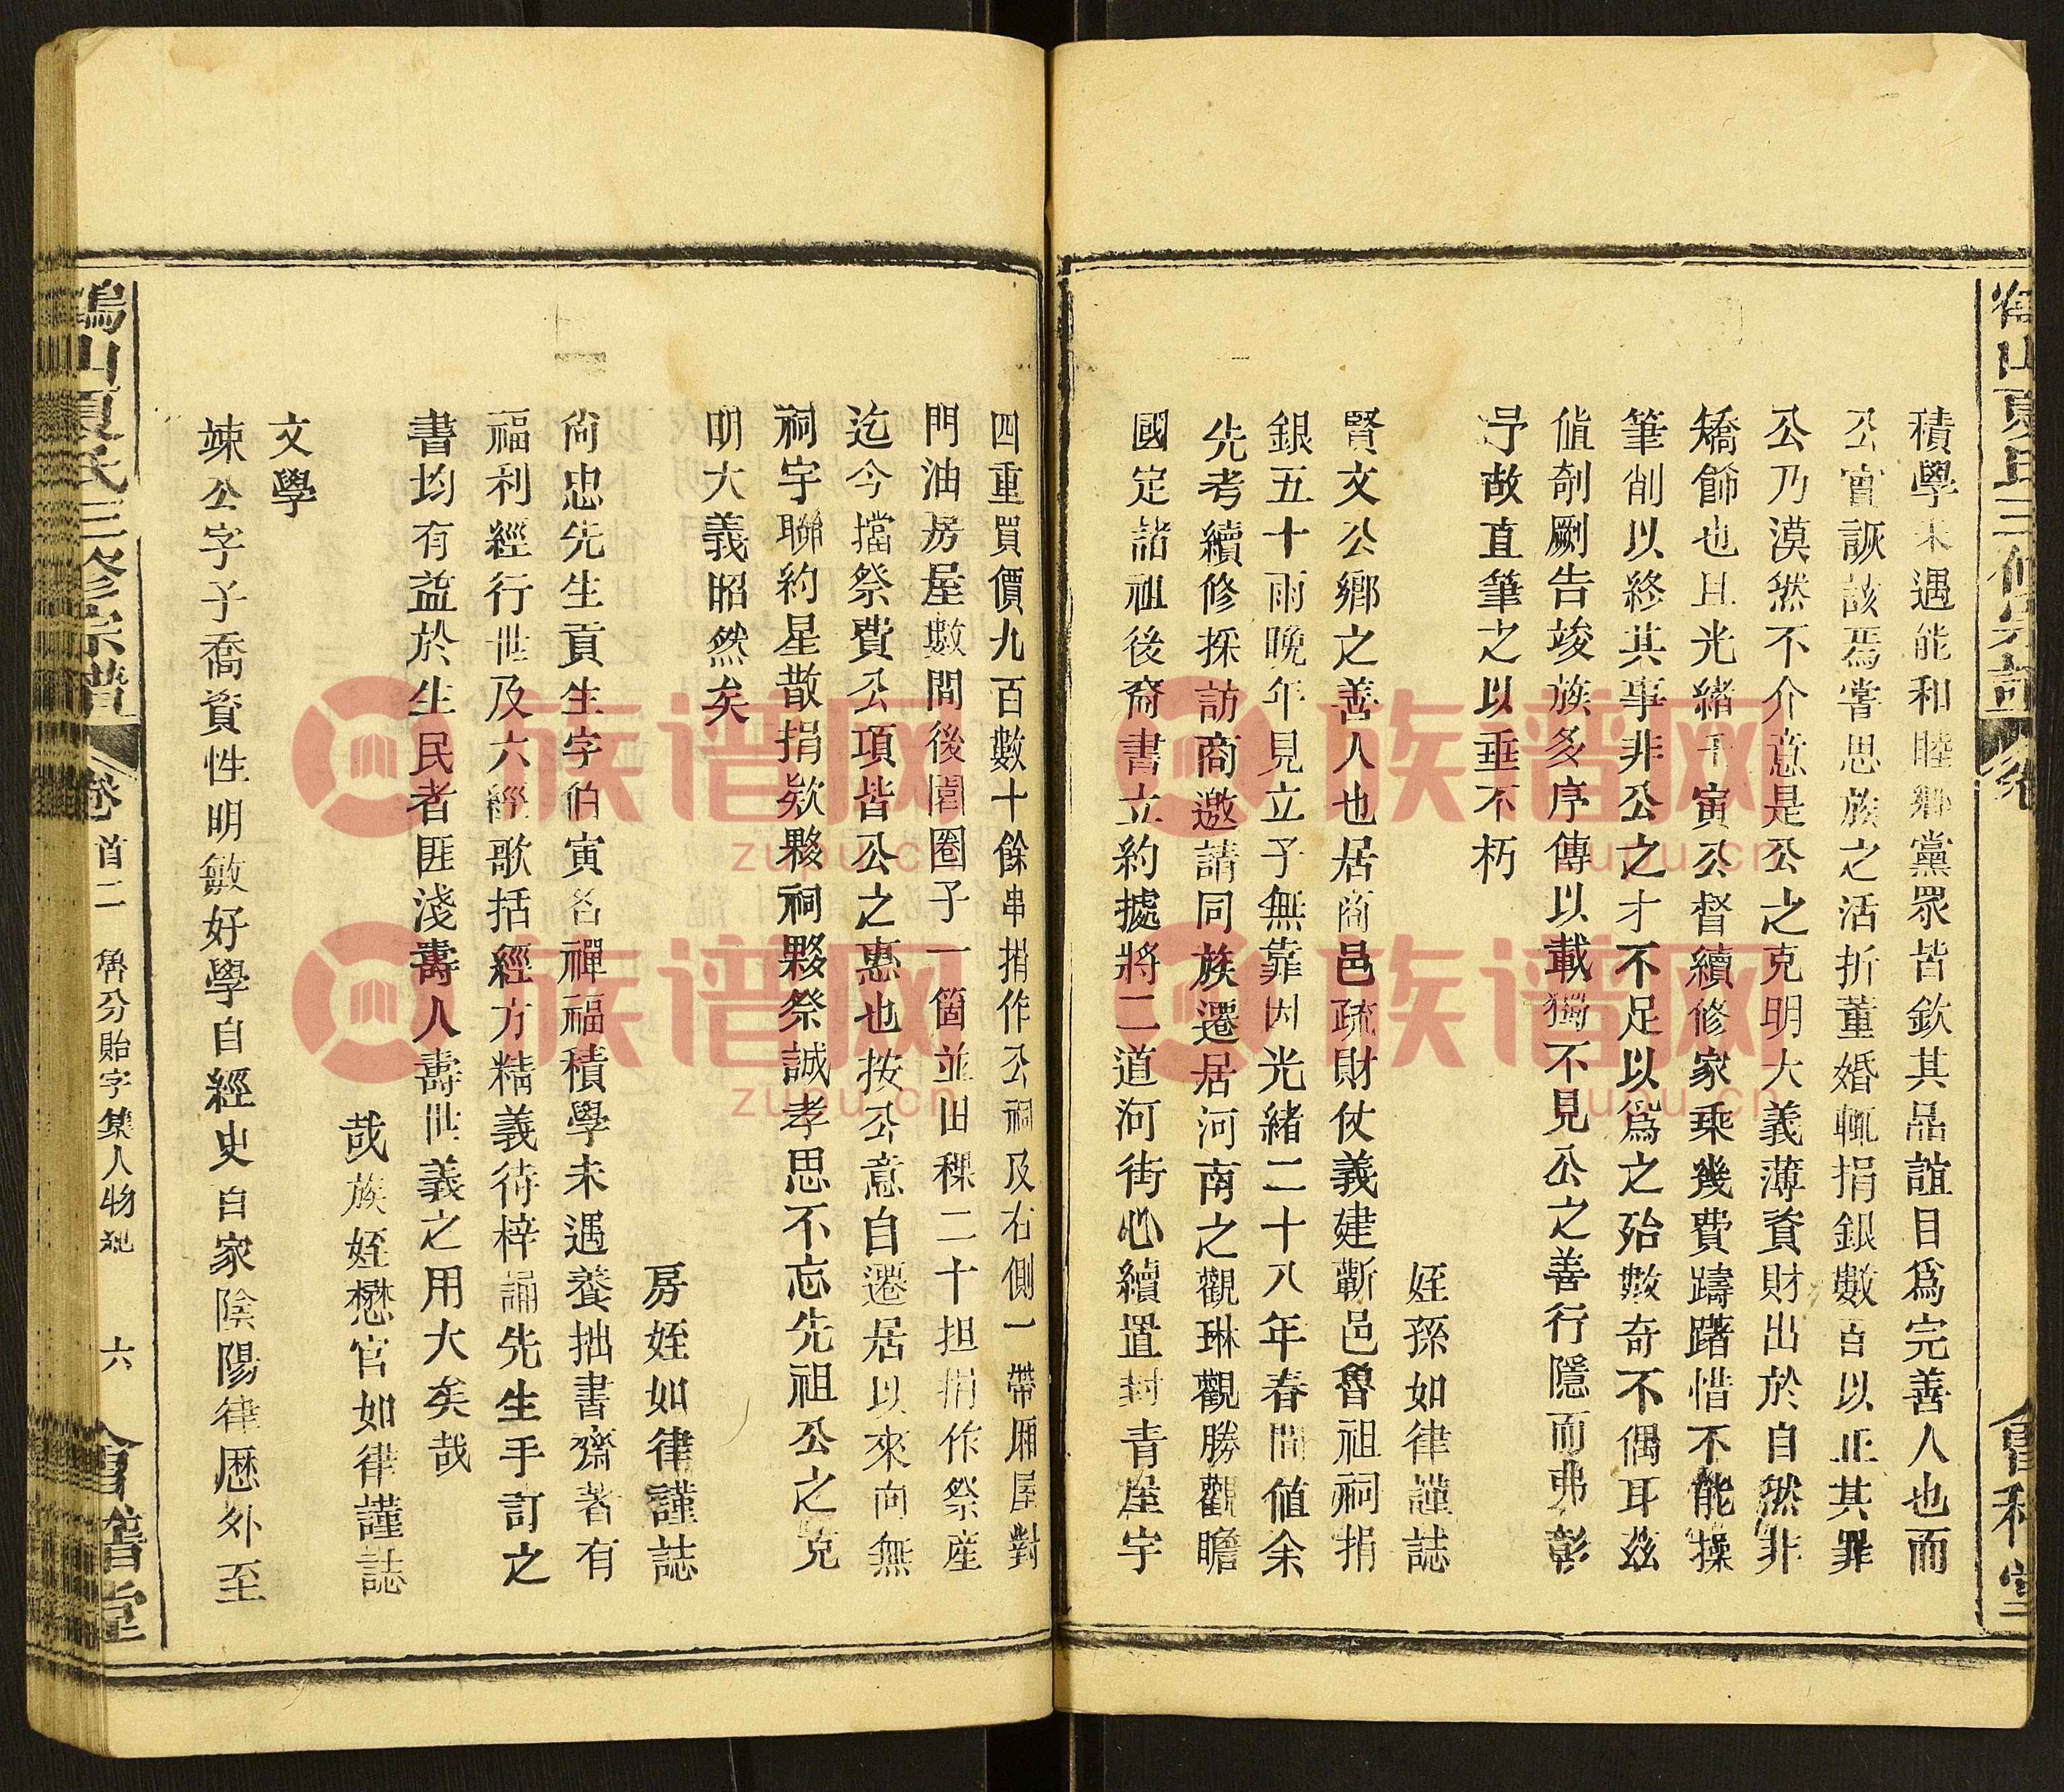 積學未遇能和睦鄉黨眾皆欽其品誼目爲完善人也而
公實詼該焉嘗思族之活折董婚輒捐銀數百以正其罪
公乃漠然不介意是公之克明大義薄資財出於自然非
矯飾也且光緒壬寅公督續修家乘幾費躊躇惜不能操
筆削以終其事非公之才不足以爲之殆數奇不偶耳茲
値剞劂告竣族多序傳以載獨不見公之善行隱而弗彰
予故直筆之以垂不朽
姪孫如律謹誌
賢文公鄉之善人也居商邑疏財仗義建蘄邑魯祖祠捐
銀五十兩晚年見立子無靠因光緒二十八年春間値余
先考續修採訪商邀請同族遷居河南之觀琳觀勝觀瞻
國定諸祖後裔書立約據將二道河街心續置封青屋宇
四重買價九百數十餘串捐作公祠及右側一帶廂屋對
門油房屋數間後園圈子一箇並田稞二十担捐作祭産
迄今擋祭費公項皆公之惠也按公意自遷居以來向無
祠宇聯約星散捐欵夥祠夥祭誠孝思不忘先祖公之克
明大義昭然矣
房姪如律謹誌
尙忠先生貢生字伯寅名禪福積學未遇養拙書齋著有
福利經行世及六經歌括經方精義待梓誦先生手訂之
書均有益於生民者匪淺壽人壽世義之用大矣哉
哉族姪懋官如律謹誌
文學
竦公字子喬資性明敏好學自經史百家陰陽律歷外至
山夏氏三修宗譜
卷首二
魯分貽字集人物紀
六
會譜堂
族谱网
zupu.cn
族谱网
zupu.cn
族谱网
zupu.cn
族谱网
zupu.cn